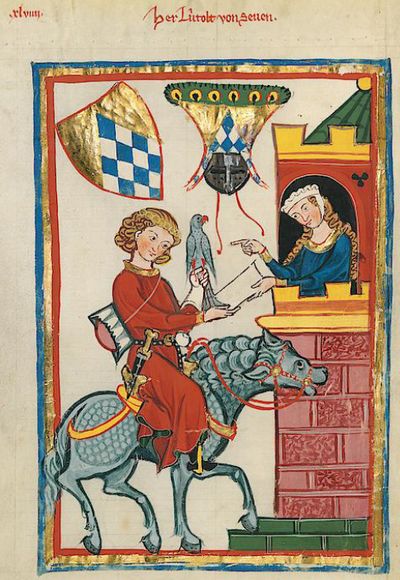 xlviiij.
Her Lu̍tolt von seuen.